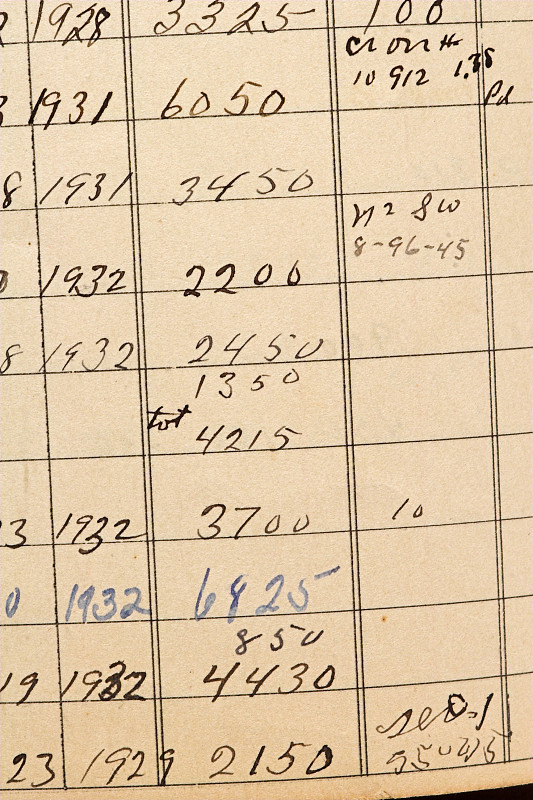 1928 3325 100
10 912 1.35
1931 6050 Pd
8 1931 3450
8-96-45
1932 2200
8 1932 2450
1350
tot
4215
23 1932 3700 10
0 1932 6825
850
19 1932 4430
23 1929 2150